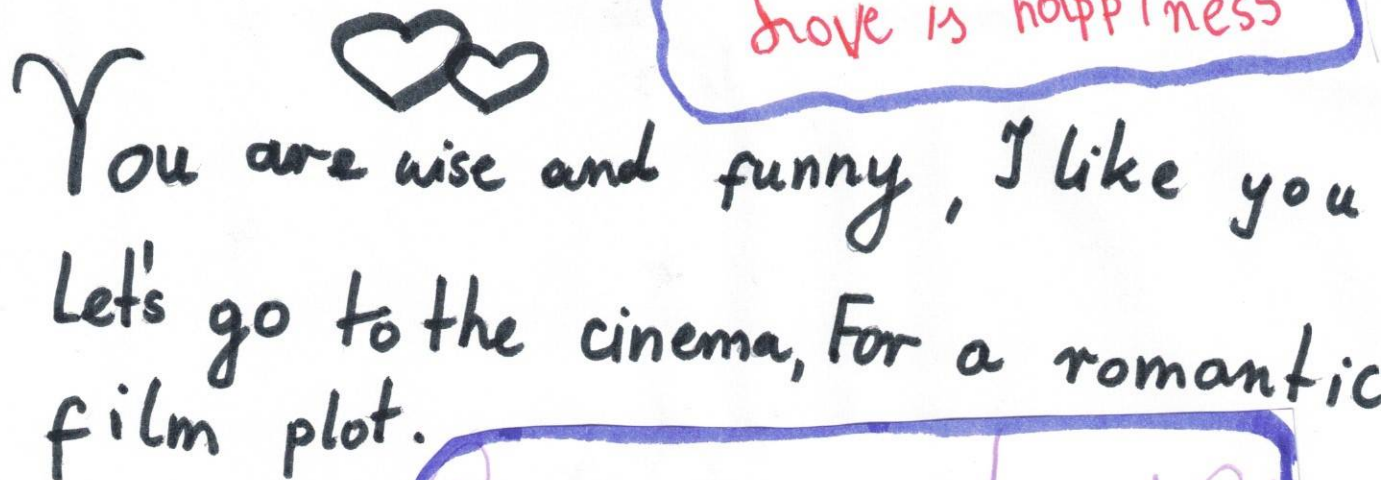 Love is happiness
You are wise and funny, I like you
Let's go to the cinema, For a romantic
film plot.